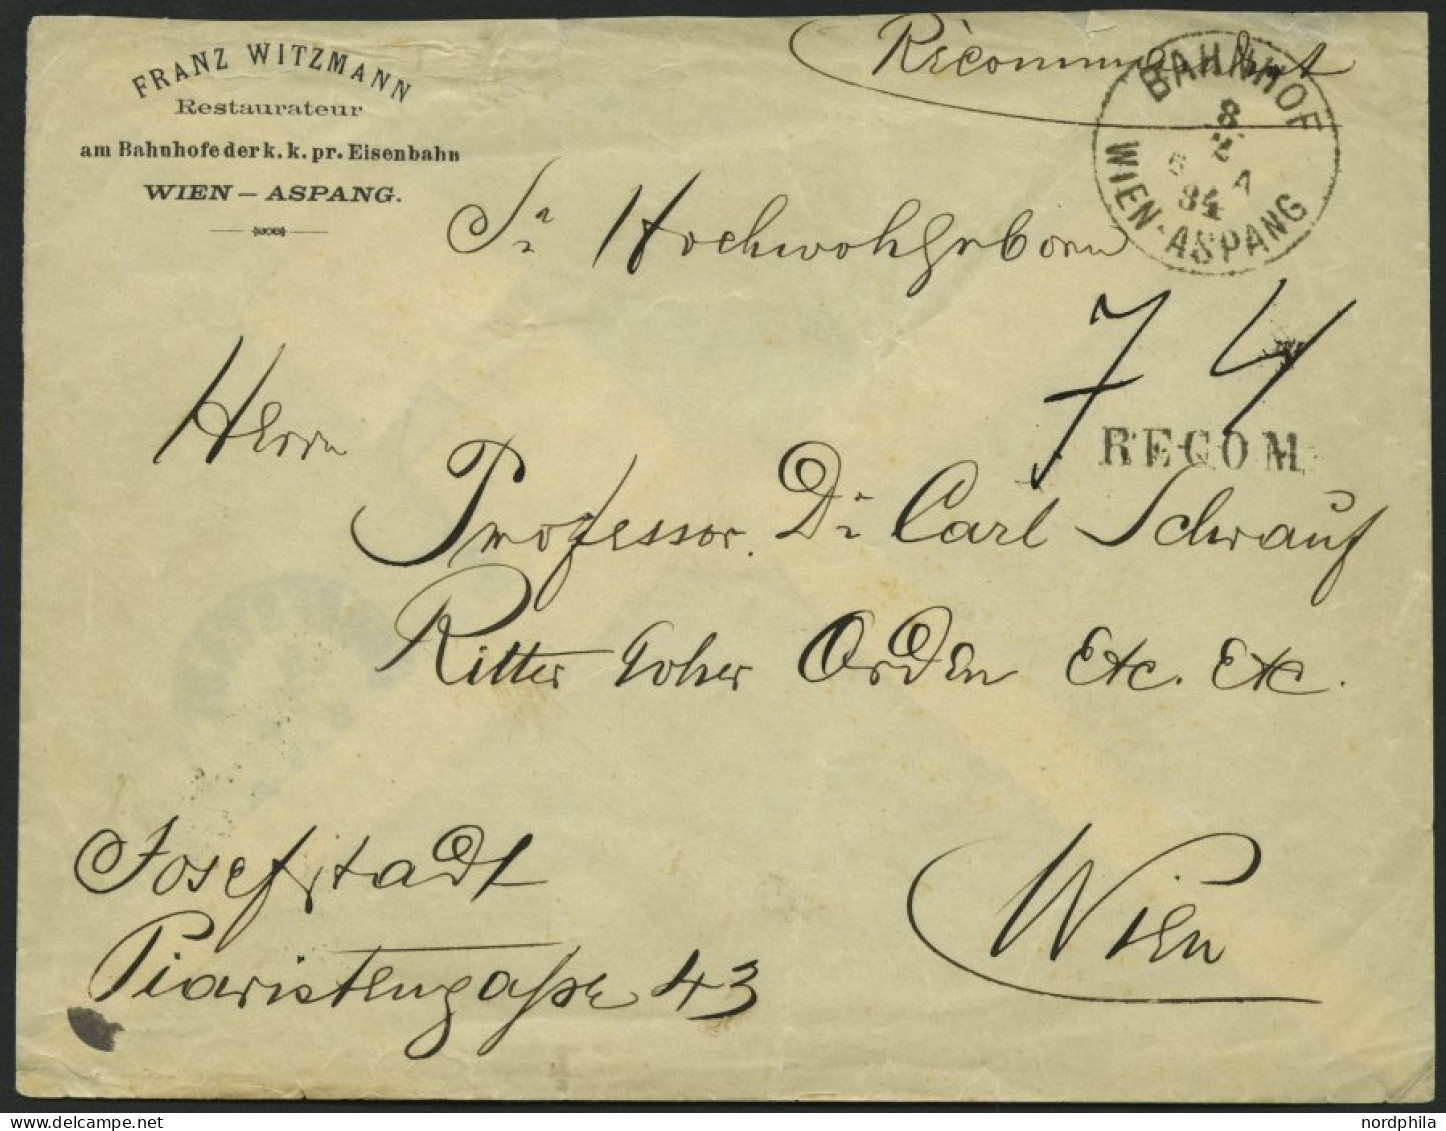 FRANZ WITZMANN
Restaurateur
am Bahnhofe der k. k. pr. Eisenbahn
WIEN – ASPANG.
Recommandirt
BAHNHOF
8
5
6 A
94
WIEN-ASPANG
Sr Hochwohlgeboren
74
RECOM
Herrn
Professor Dr Carl Schrauf
Ritter hoher Orden Etc. Etc.
Josefstadt
Piaristengaße 43
Wien
nordphila